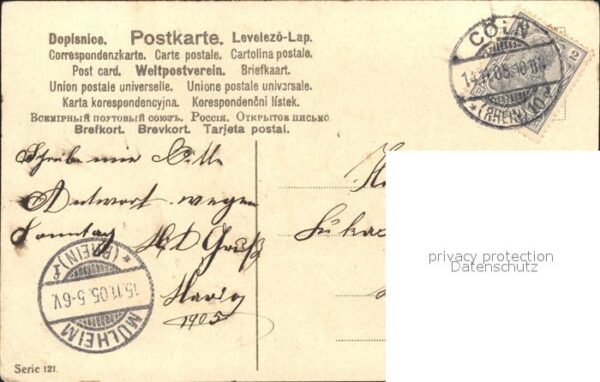 Dopisnice. Postkarte. Levelező-Lap.
Correspondenzkarte. Carte postale. Cartolina postale.
Post card. Weltpostverein. Briefkaart.
Union postale universelle. Unione postale universale.
Karta korespondencyjna. Korespondenční lístek.
Всемірный почтовый союзъ. Россія. Открытое письмо.
Brefkort. Brevkort. Tarjeta postal.
CÖLN
14.11.05.10-11N.
* (RHEIN) 10
2
Schreibe mir Bitte
Antwort wegen
Sonntag M. d. Gruß
1905
* (RHEIN) *
15.11.05.5-6V.
MÜLHEIM
privacy protection
Datenschutz
Serie 121.